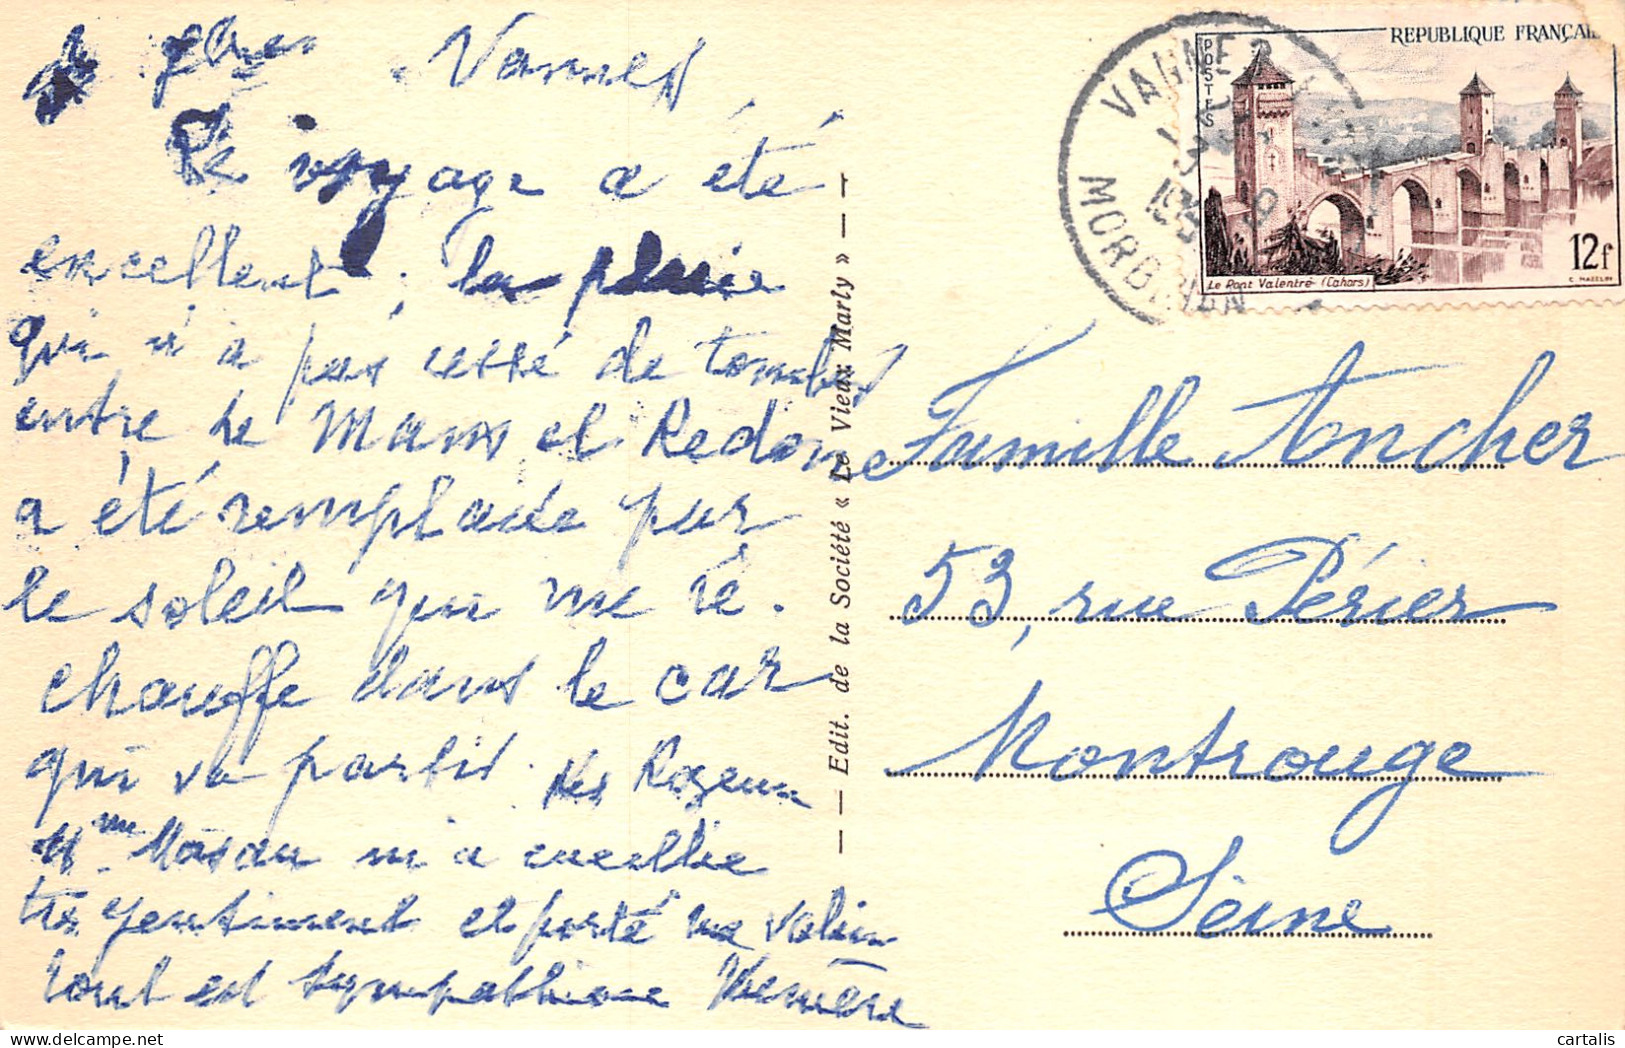 Vannes
Le voyage a été
excellent, la pluie
qui n'a pas cessé de tomber
entre le Mans et Redon
a été remplacée par
le soleil qui me ré.
chauffe dans le car
qui va partir. Mes
Mme m'a cueillie
très gentiment et porté ma valise
tout est sympathique
Edit. de la Société « Le Vieux Marly »
VANNES
MORBIHAN
REPUBLIQUE FRANÇAI
POSTES
12f
Le Pont Valentré (Cahors)
C. MAZELIN
Famille Ancher
53, rue Périer
Montrouge
Seine
cartalis